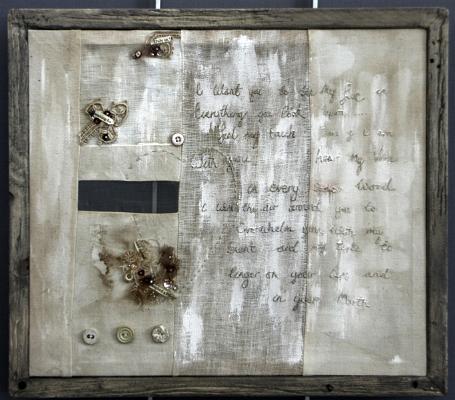 I Want you to see My face in
Everything you Look
feel my touch I am
With you hear My
in every Word
I want the air around you to
overwhelm you with my
scent and my taste to
linger on your Lips and
in your Mouth